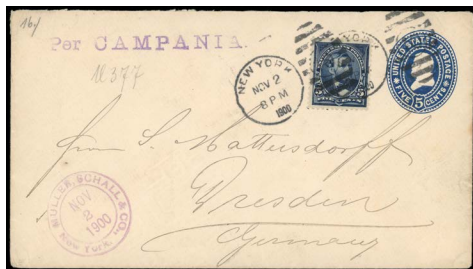 Per CAMPANIA.
NEW YORK
NOV 2
8 PM
1900
UNITED STATES POSTAGE
FIVE 5 CENTS
Herrn S. Mattersdorff
Dresden
Germany
MULLER, SCHALL & CO.,
NOV
2
1900
NEW YORK.